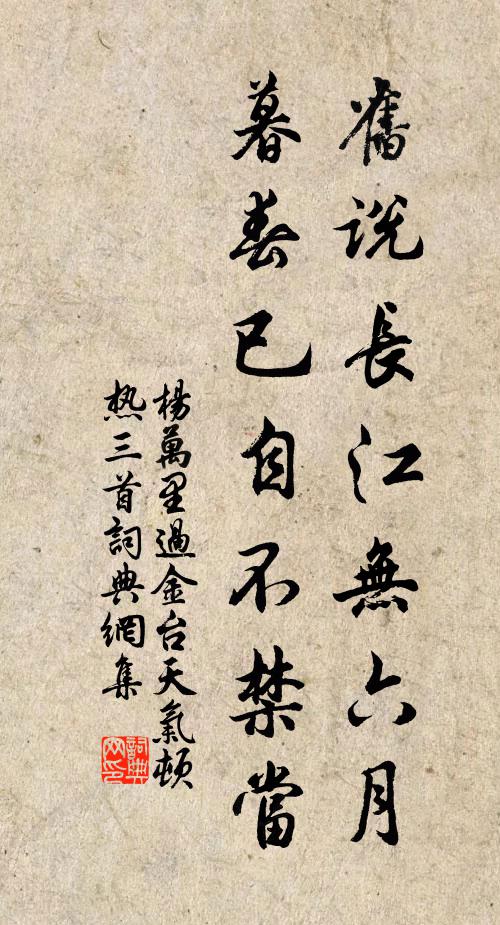 舊說長江無六月
暮春已自不禁當
楊萬里過金台天氣頓
热三首詞典網集
詞典
网印